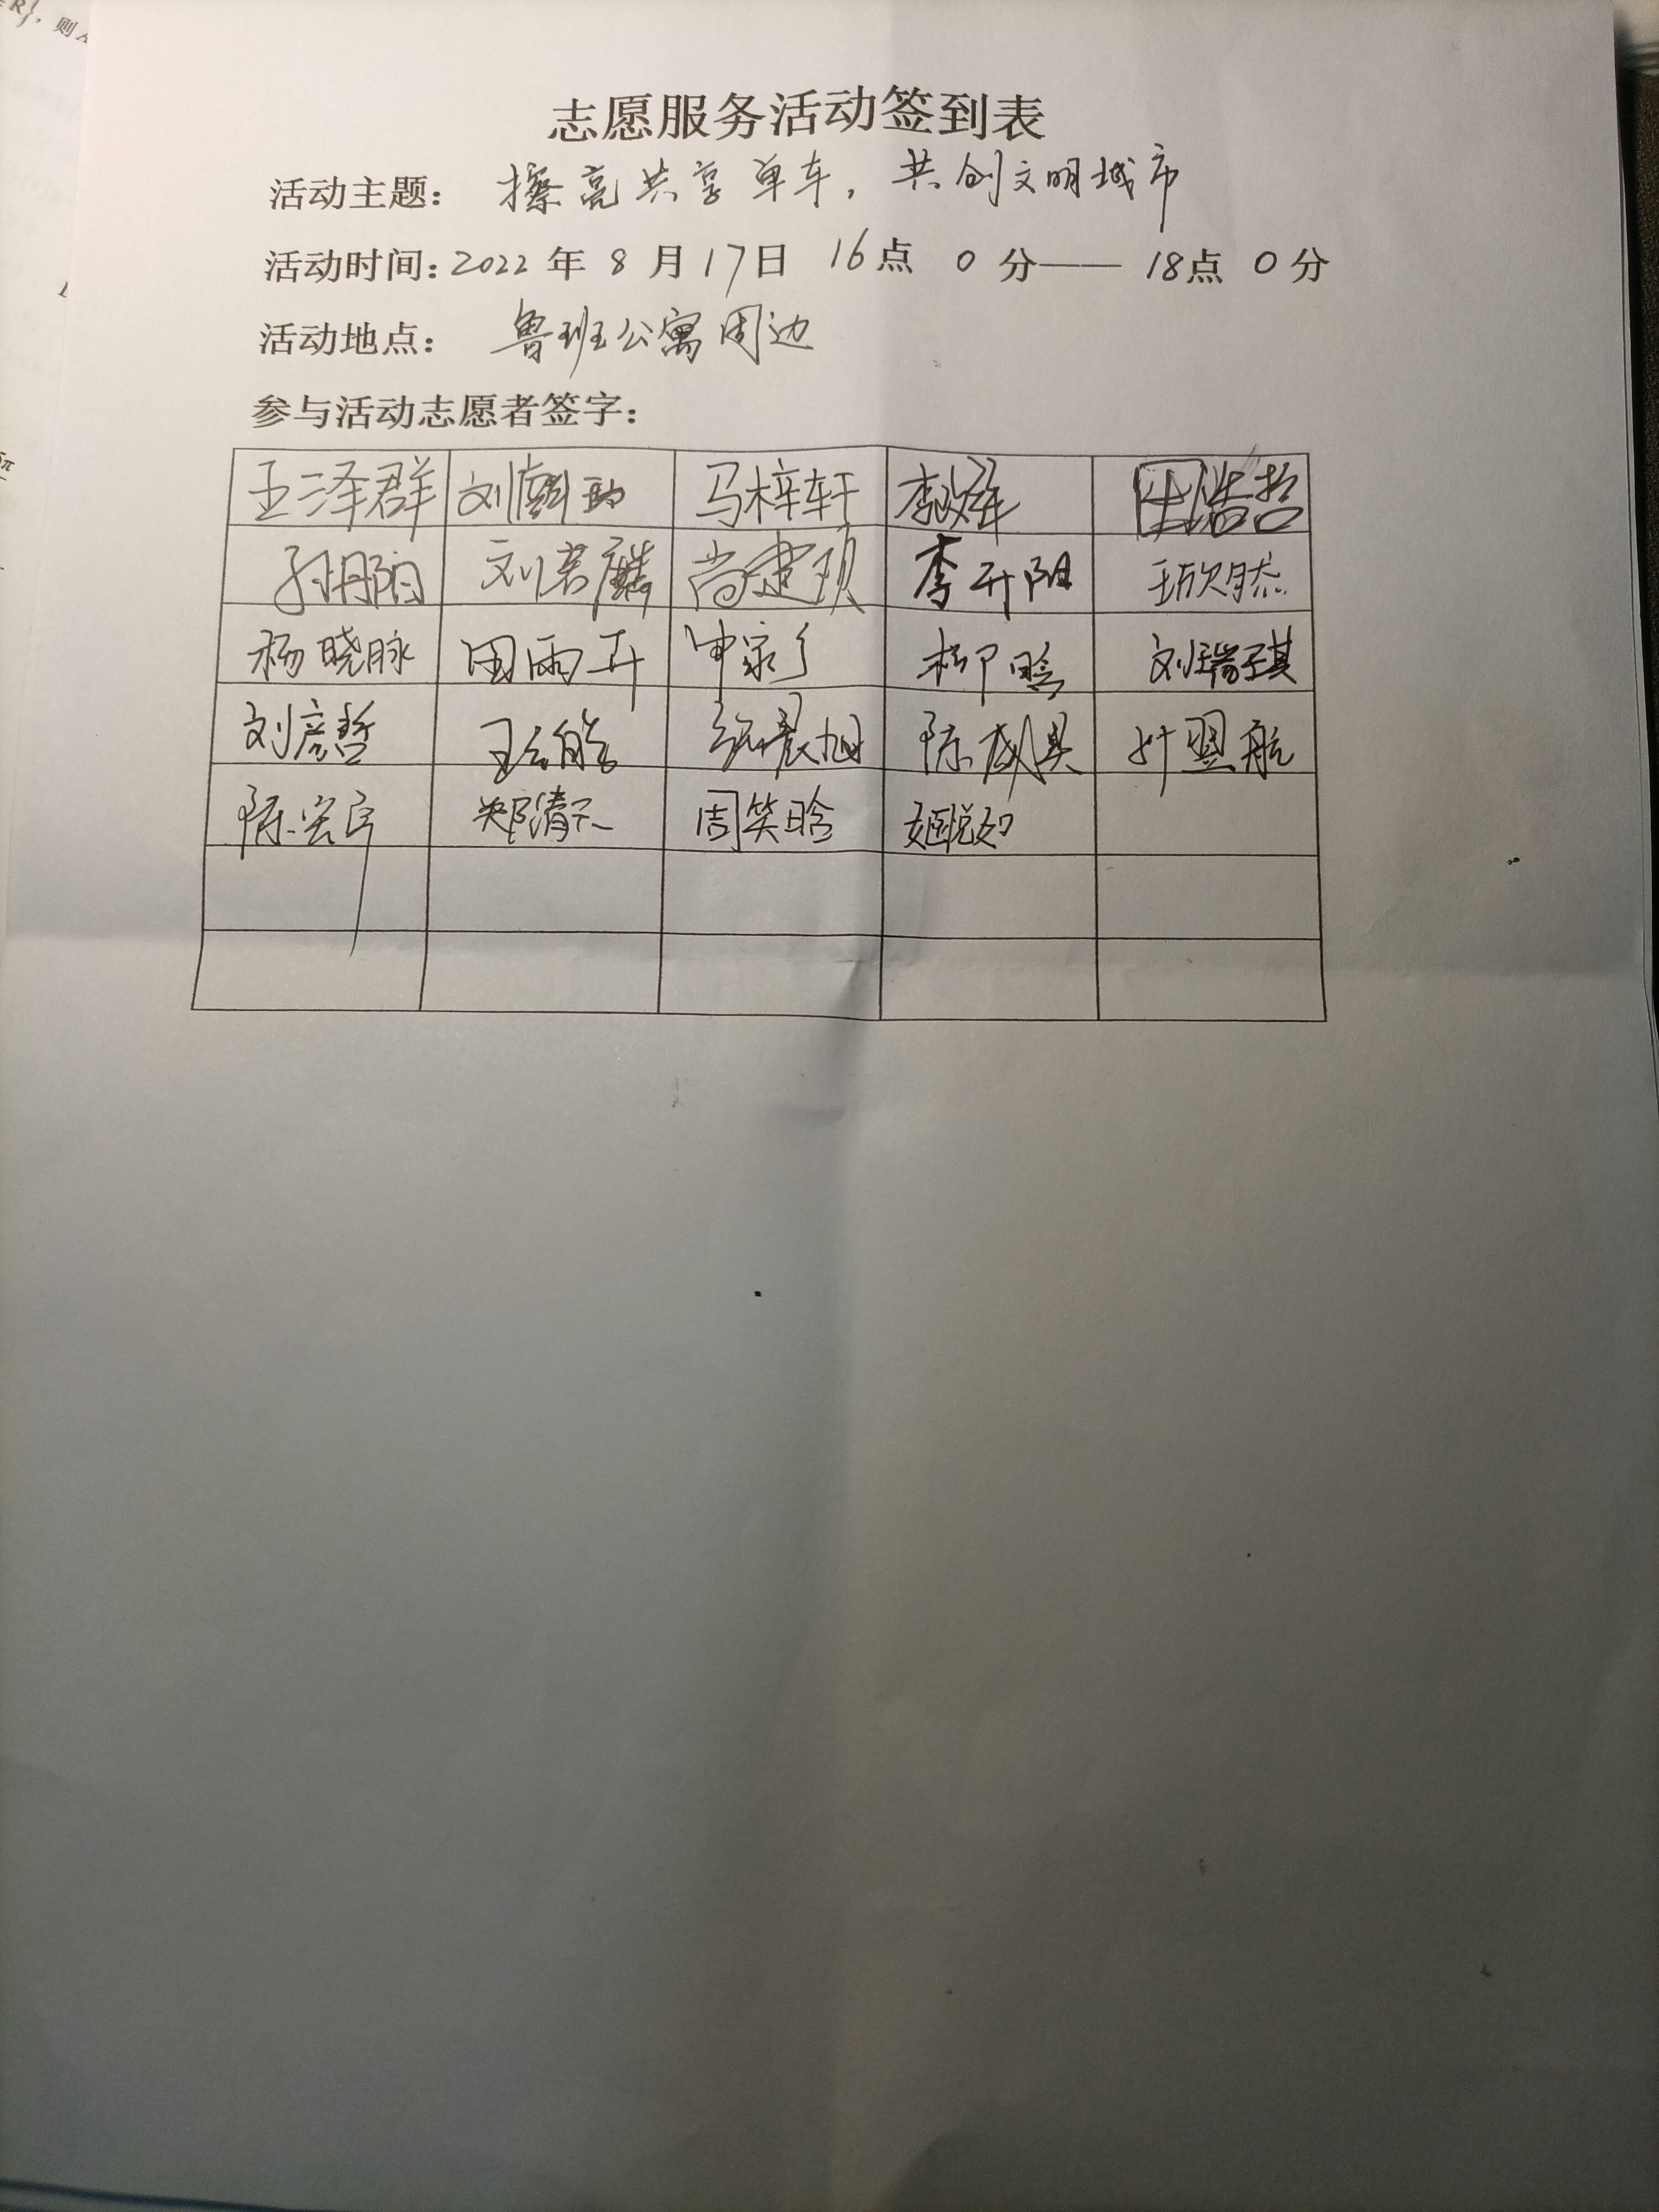 志愿服务活动签到表
活动主题： 擦亮共享单车，共创文明城市
活动时间：2022 年 8 月 17 日 16 点 0 分—— 18 点 0 分
活动地点： 鲁班公寓周边
参与活动志愿者签字：
王泽群 马梓轩 浩哲
孙丹阳 刘若麟 尚建项 李开阳
杨晓脉 田雨卉 柳晗 刘瑞琪
刘彦哲 张晨旭 陈威 叶翌航
陈宏宇 郑清 周笑晗 姬悦如